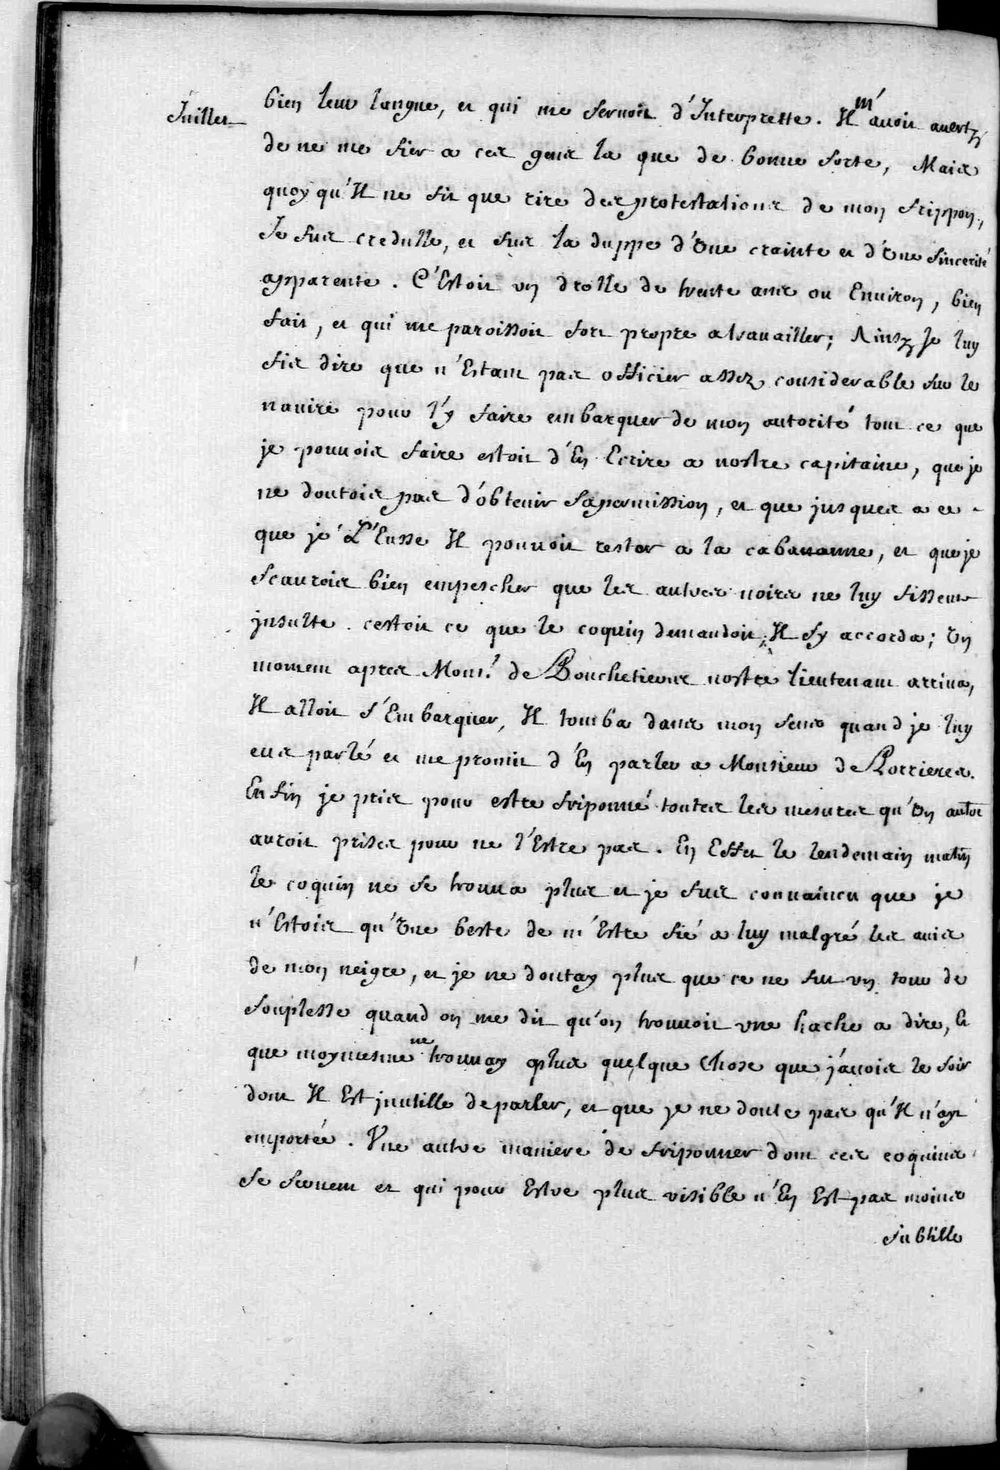 Juillet
bien leur langue, et qui me servoit d'Interprette. Il m'avoit averty
de ne me fier a ces gens la que de bonne sorte, Mais
quoy qu'Il ne fit que rire des protestations de mon frippon,
Je fus credulle, et fus la duppe d'vne crainte et d'vne sincerité
apparente. C'Estoit vn drolle de trente ans ou Environ, bien
fait, et qui me paroissoit fort propre a travailler; Ainsy Je luy
fis dire que n'Estant pas officier assez considerable sur le
navire pour l'y faire embarquer de mon autorité tout ce que
je pouvois faire estoit d'En Ecrire a nostre capitaine, que je
ne doutois pas d'obtenir sa permission, et que jusques a ce
que je L'Eusse Il pouvoit rester a la cabanne, et que je
scaurois bien empescher que les autres noirs ne luy fissent
insulte. cestoit ce que le coquin demandoit; Il s'y accorda; Un
moment apres Mons.r de Bouchetieres nostre lieutenant arriva,
Il alloit s'Embarquer, Il tomba dans mon sens quand je luy
eus parlé et me promit d'En parler a Monsieur de Porrieres.
Enfin je pris pour estre friponné toutes les mesures qu'un autre
auroit prises pour ne l'Estre pas. En Effet le lendemain matin
le coquin ne se trouva plus et je fus convaincu que je
n'Estois qu'vne beste de m'Estre fié a luy malgré les avis
de mon neigre, et je ne doutay plus que ce ne fut vn tour de
souplesse quand on me dit qu'on trouvoit vne hache a dire, et
que moymesme ne trouvay plus quelque Chose que j'avois le soir
dont Il Est jnutille de parler, et que je ne doute pas qu'Il n'ayt
emportée. Vne autre maniere de friponner dont ces coquins
se servent et qui pour Estre plus visible n'En Est pas moins
subtille